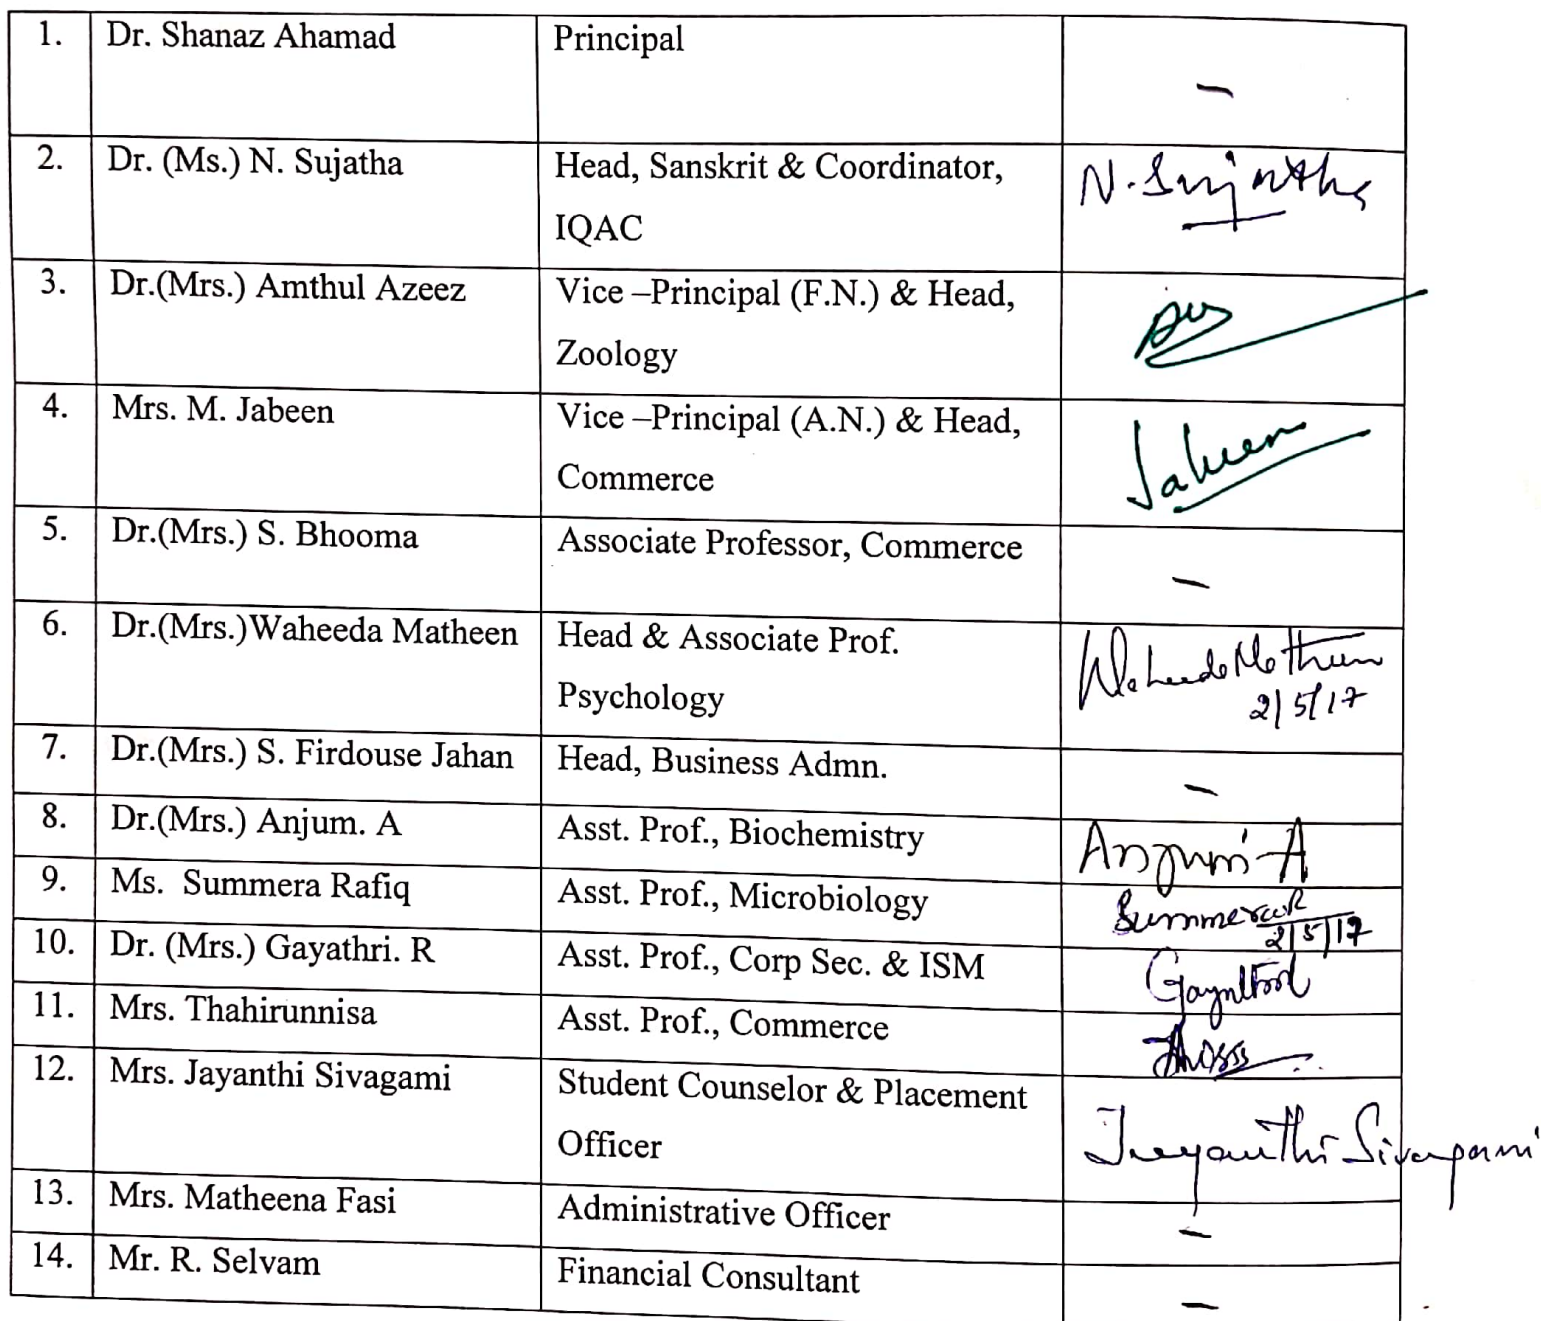 1. Dr. Shanaz Ahamad Principal –
2. Dr. (Ms.) N. Sujatha Head, Sanskrit & Coordinator, N. Sujatha
IQAC
3. Dr.(Mrs.) Amthul Azeez Vice –Principal (F.N.) & Head,
Zoology
4. Mrs. M. Jabeen Vice –Principal (A.N.) & Head, Jabeen
Commerce
5. Dr.(Mrs.) S. Bhooma Associate Professor, Commerce –
6. Dr.(Mrs.)Waheeda Matheen Head & Associate Prof. Waheeda Matheen
Psychology 2/5/17
7. Dr.(Mrs.) S. Firdouse Jahan Head, Business Admn. –
8. Dr.(Mrs.) Anjum. A Asst. Prof., Biochemistry Anjum A
9. Ms. Summera Rafiq Asst. Prof., Microbiology Summera R
2/5/17
10. Dr. (Mrs.) Gayathri. R Asst. Prof., Corp Sec. & ISM Gayathri
11. Mrs. Thahirunnisa Asst. Prof., Commerce
12. Mrs. Jayanthi Sivagami Student Counselor & Placement Jeyanthi Sivagami
Officer
13. Mrs. Matheena Fasi Administrative Officer –
14. Mr. R. Selvam Financial Consultant –